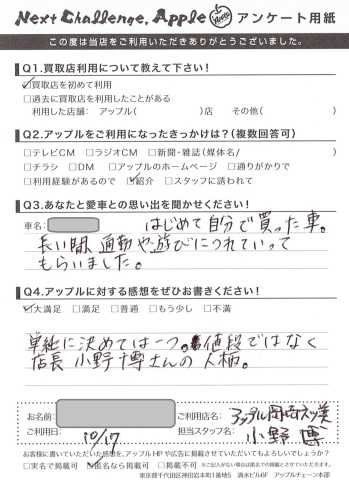 Next Challenge, Apple アンケート用紙
この度は当店をご利用いただきありがとうございました。
Q1.買取店利用について教えて下さい！
☑買取店を初めて利用
□過去に買取店を利用したことがある
利用した店舗: アップル( )店 その他( )
Q2.アップルをご利用になったきっかけは?(複数回答可)
□テレビCM □ラジオCM □新聞・雑誌(媒体名/ )
□チラシ □DM □アップルのホームページ □通りがかりで
□利用経験があるので ☑紹介 □スタッフに誘われて
Q3.あなたと愛車との思い出を聞かせください！
車名: はじめて自分で買った車。
長い間、通勤や遊びにつれていって
もらいました。
Q4.アップルに対する感想をぜひお書きください！
☑大満足 □満足 □普通 □もう少し □不満
単純に決めては一つ。値段ではなく
店長 小野 博さんの人柄。
お名前: ご利用店名: アップル岡崎
ご利用日: 10/17 担当スタッフ名: 小野 博
お客様に書いていただいた感想を、アップルHPや広告に掲載させていただいてもよろしいでしょうか？
□実名で掲載可 ☑匿名なら掲載可 □掲載不可 ※ご記入がない場合は匿名での掲載とさせていただきます。
東京都千代田区神田岩本町1番地 清水ビル6F アップルチェーン本部